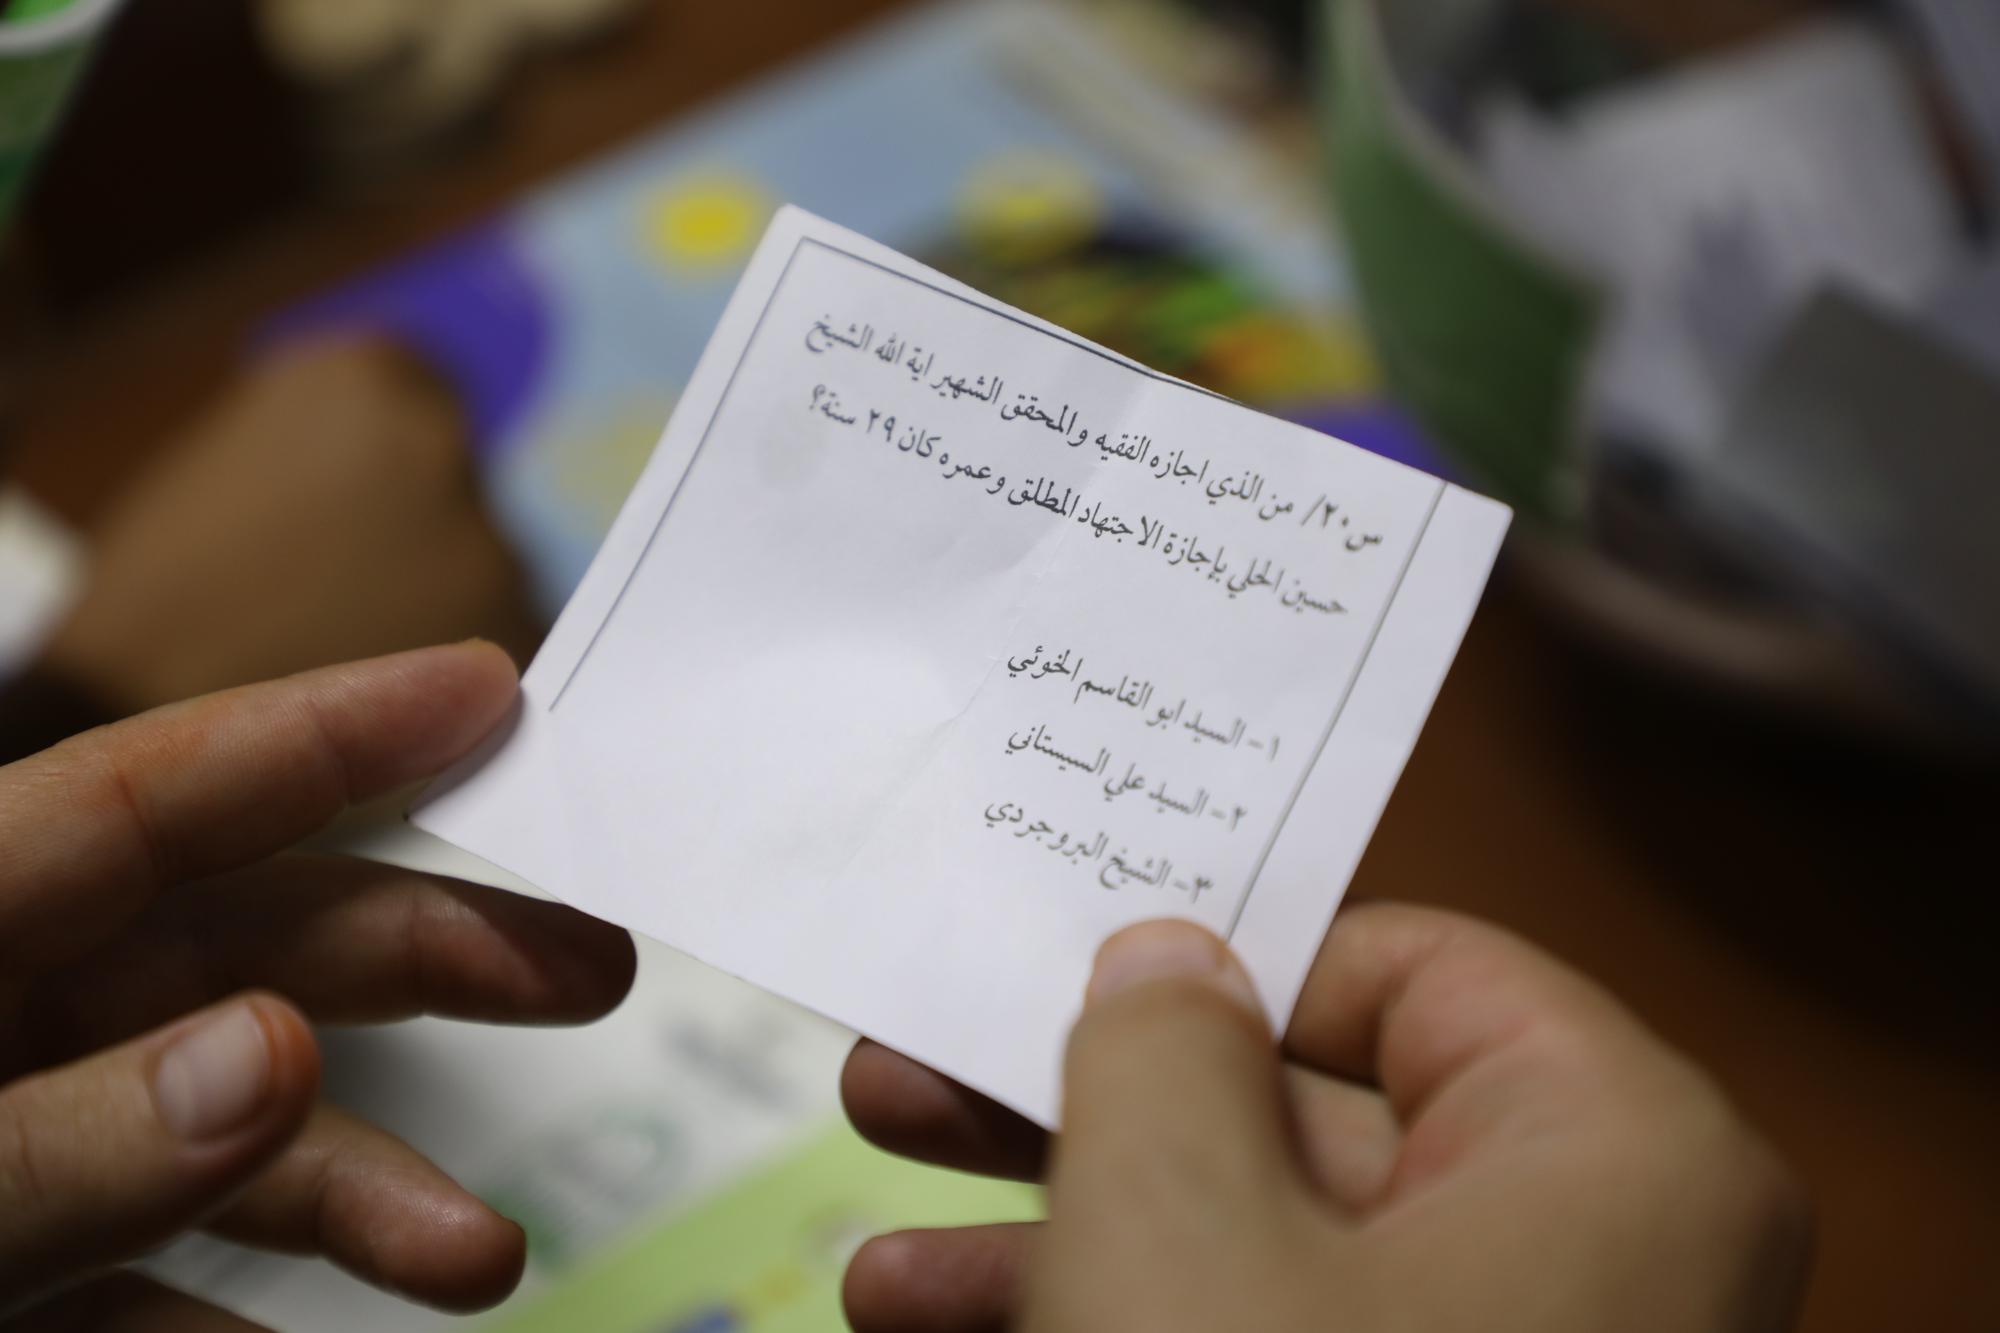 س٢٠/ من الذي اجازه الفقيه والمحقق الشهير اية الله الشيخ
حسين الحلي بإجازة الاجتهاد المطلق وعمره كان ٢٩ سنة؟
١- السيد ابو القاسم الخوئي
٢- السيد علي السيستاني
٣- الشيخ البروجردي